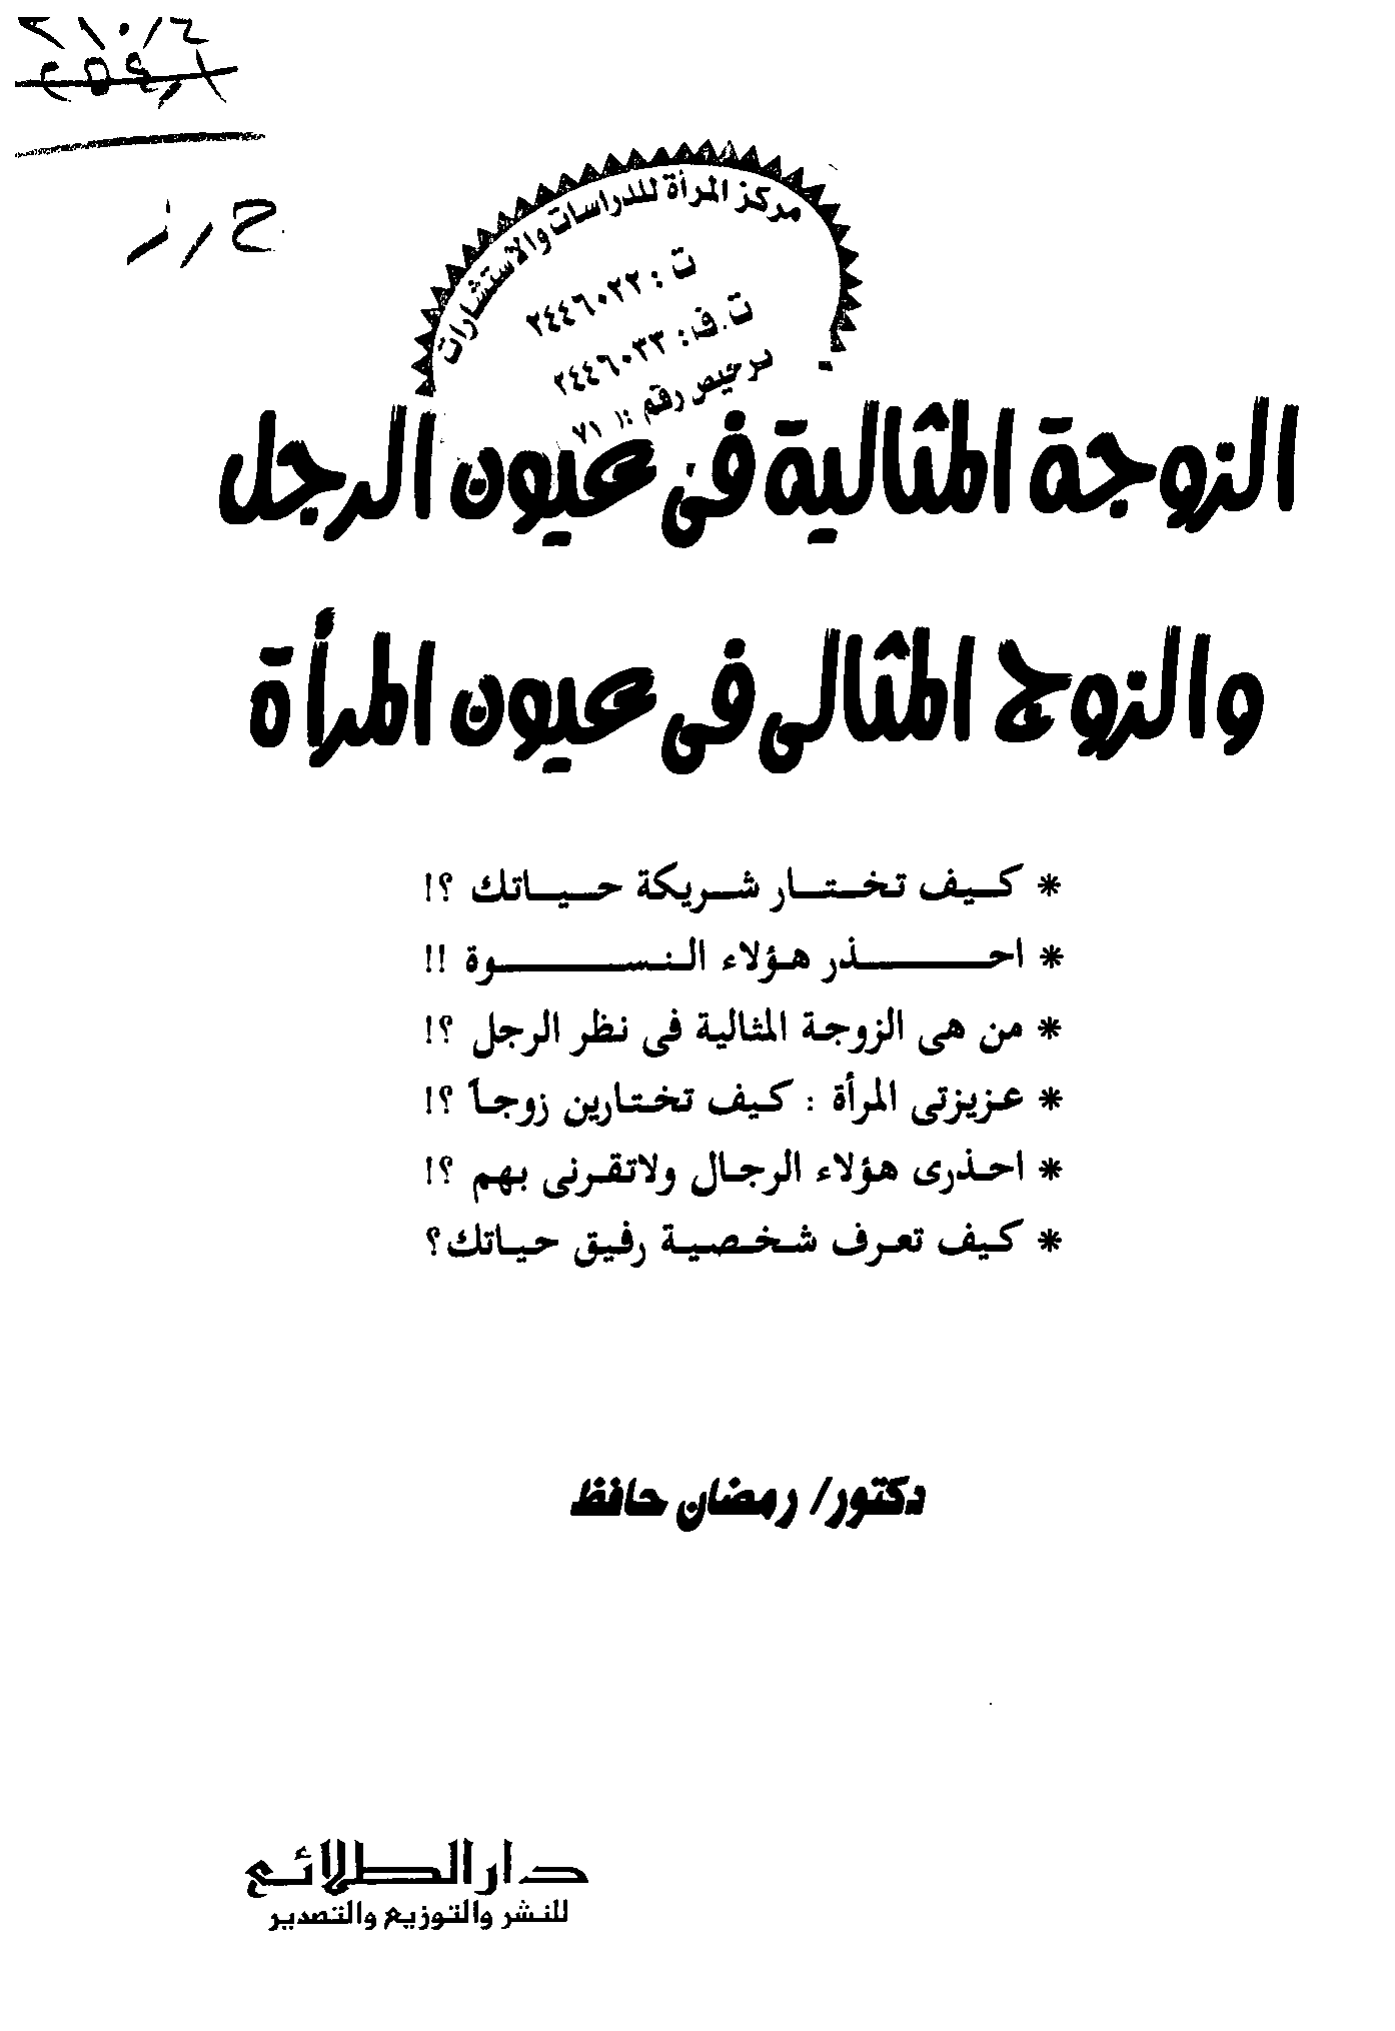 مركز المرأة للدراسات والاستشارات
ت : ٢٤٤٦٠٢٢
ت.ف: ٢٤٤٦٠٣٣
ترخيص رقم : ( ٧١
الزوجة المثالية فى عيون الرجل
والزوج المثالى فى عيون المرأة
* كيف تختار شريكة حياتك ؟!
* احذر هؤلاء النسوة !!
* من هى الزوجة المثالية فى نظر الرجل ؟!
* عزيزتى المرأة : كيف تختارين زوجاً ؟!
* احذرى هؤلاء الرجال ولاتقرنى بهم ؟!
* كيف تعرف شخصية رفيق حياتك؟
دكتور/ رمضان حافظ
دار الطلائع
للنشر والتوزيع والتصدير